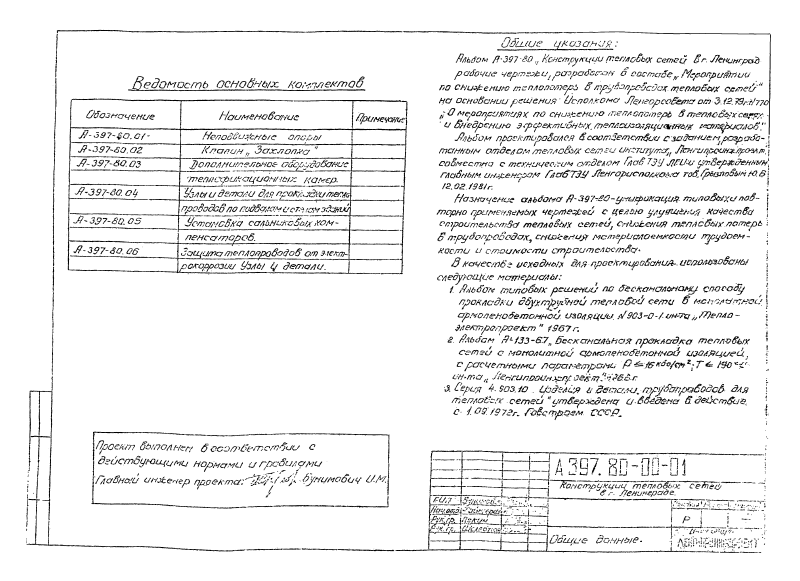 Ведомость основных комплектов
Обозначение Наименование Примечание
А-397-80.01- Неподвижные опоры
А-397-80.02 Клапан „Захлопка"
А-397-80.03 Дополнительное оборудование
теплофикационных камер.
А-397-80.04 Узлы и детали для прокладки тепло
проводов по подвалам и стенам зданий
А-397-80.05 Установка сальниковых ком-
пенсаторов.
А-397-80.06 Защита теплопроводов от элект-
рокоррозии Узлы и детали.
Проект выполнен в соответствии с
действующими нормами и правилами
Главный инженер проекта: Бунимович И.М.
Общие указания:
Альбом А-397-80 „Конструкции тепловых сетей в г. Ленинграде
рабочие чертежи, разработан в составе „Мероприятии
по снижению теплопотерь в трубопроводах тепловых сетей"
на основании решения Исполкома Ленгорсовета от 3.12.79г.
„О мероприятиях по снижению теплопотерь в тепловых сетях
и внедрению эффективных теплоизоляционных материалов".
Альбом проектировался в соответствии с заданием, разрабо-
танным отделом тепловых сетей института „Ленгипроинжпроект"
совместно с техническим отделом Глав ТЭУ ЛГИ и утвержденным
главным инженером Глав ТЭУ Ленгорисполкома тов.
12.02.1981г.
Назначение альбома А-397-80-унификация типовых и пов-
торно применяемых чертежей с целью улучшения качества
строительства тепловых сетей, снижения тепловых потерь
в трубопроводах, снижения материалоемкости трудоем-
кости и стоимости строительства.
В качестве исходных для проектирования использованы
следующие материалы:
1. Альбом типовых решений по бесканальному способу
прокладки двухтрубной тепловой сети в монолитной
армопенобетонной изоляции. N 903-0-1 ин-та „Тепло-
электропроект" 1967 г.
2. Альбом А-133-67 „Бесканальная прокладка тепловых
сетей с монолитной армопенобетонной изоляцией,
с расчетными параметрами P ≤ 16 кгс/см²; T ≤ 150°C"
ин-та „Ленгипроинжпроект"
3. Серия 4.903.10 Изделия и детали трубопроводов для
тепловых сетей" утверждена и введена в действие
с 1.09.1972г. Госстроем СССР.
А 397. 80-00-01
Конструкции тепловых сетей
в г. Ленинграде
ГИП
Рук.гр.
Р
Общие данные.